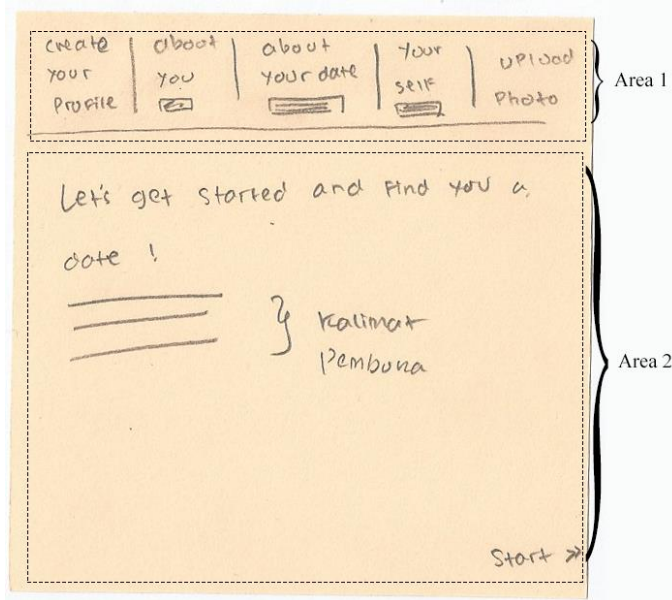 create your Profile
about you
about your date
Your self
UPLoad Photo
Area 1
Let's get started and find you a
date !
Kalimat
Pembuka
Area 2
Start >>